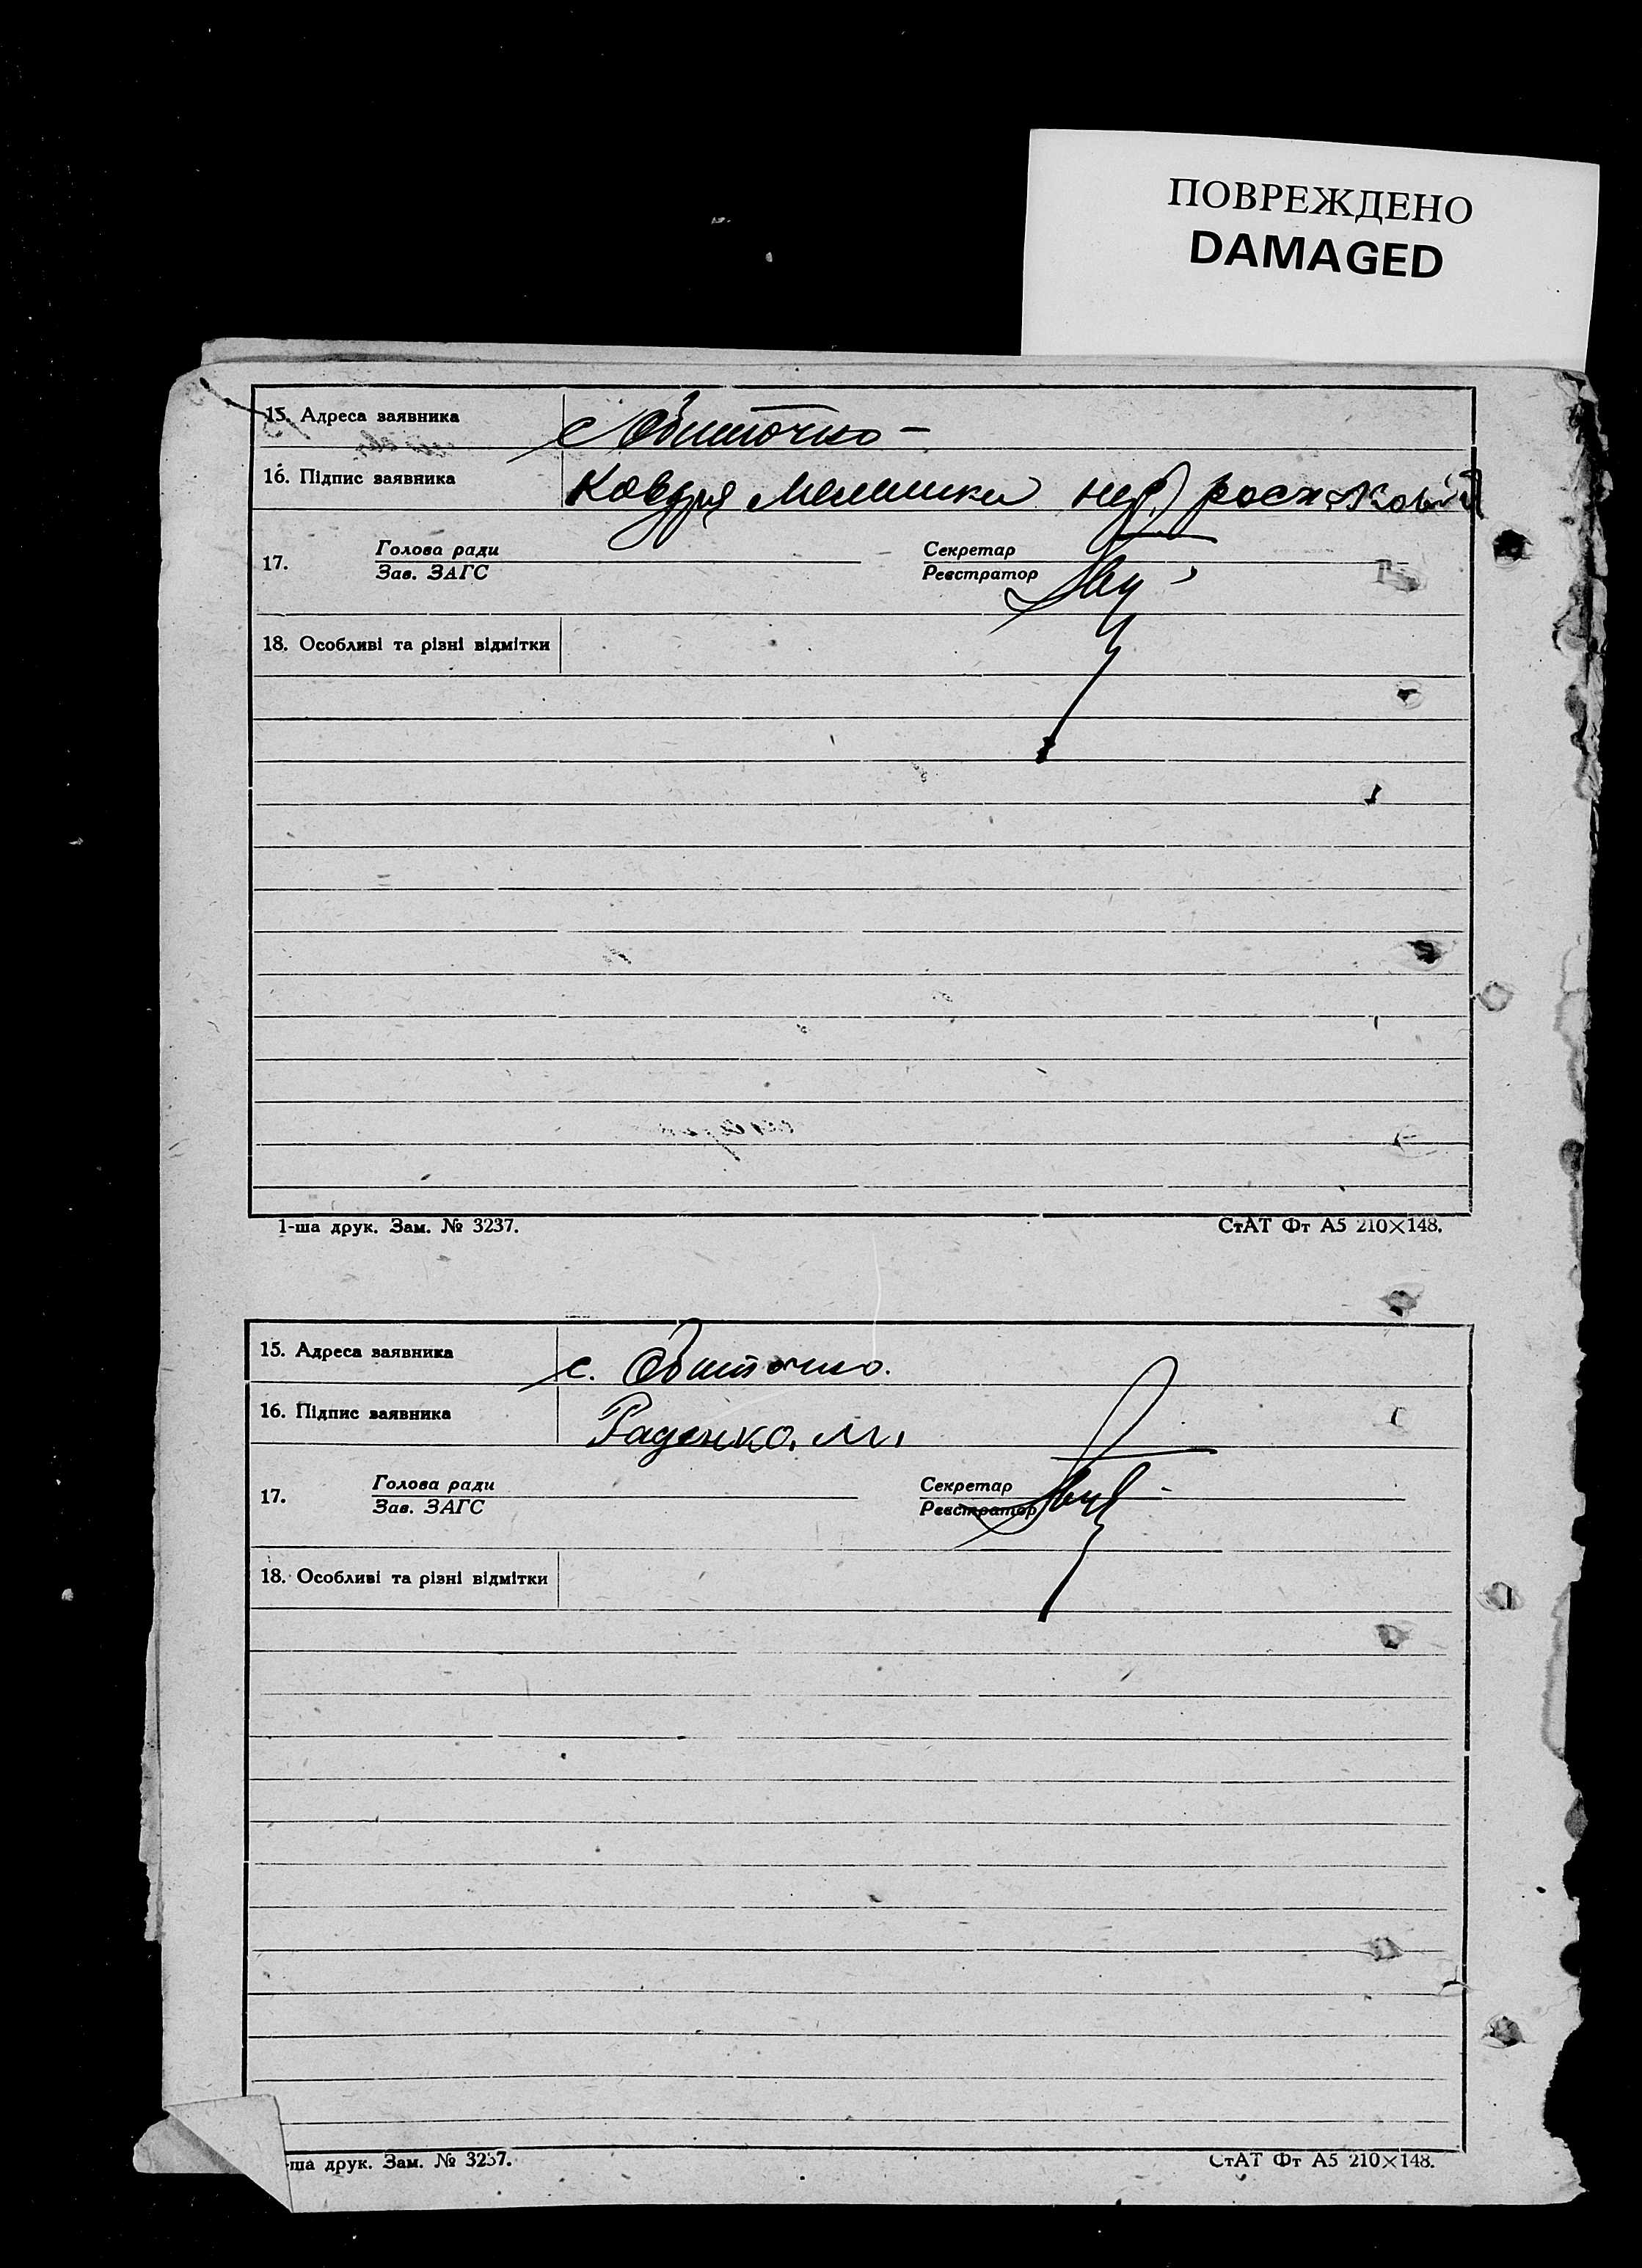 ПОВРЕЖДЕНО
DAMAGED
15. Адреса заявника с Обиточно –
16. Підпис заявника Ковдря
17. Голова ради Секретар
Зав. ЗАГС Реєстратор
18. Особливі та різні відмітки
1-ша друк. Зам. № 3237. СтАТ Фт А5 210×148.
15. Адреса заявника с. Обиточно.
16. Підпис заявника Раденко. М.
17. Голова ради Секретар
Зав. ЗАГС Реєстратор
18. Особливі та різні відмітки
-ша друк. Зам. № 3237. СтАТ Фт А5 210×148.